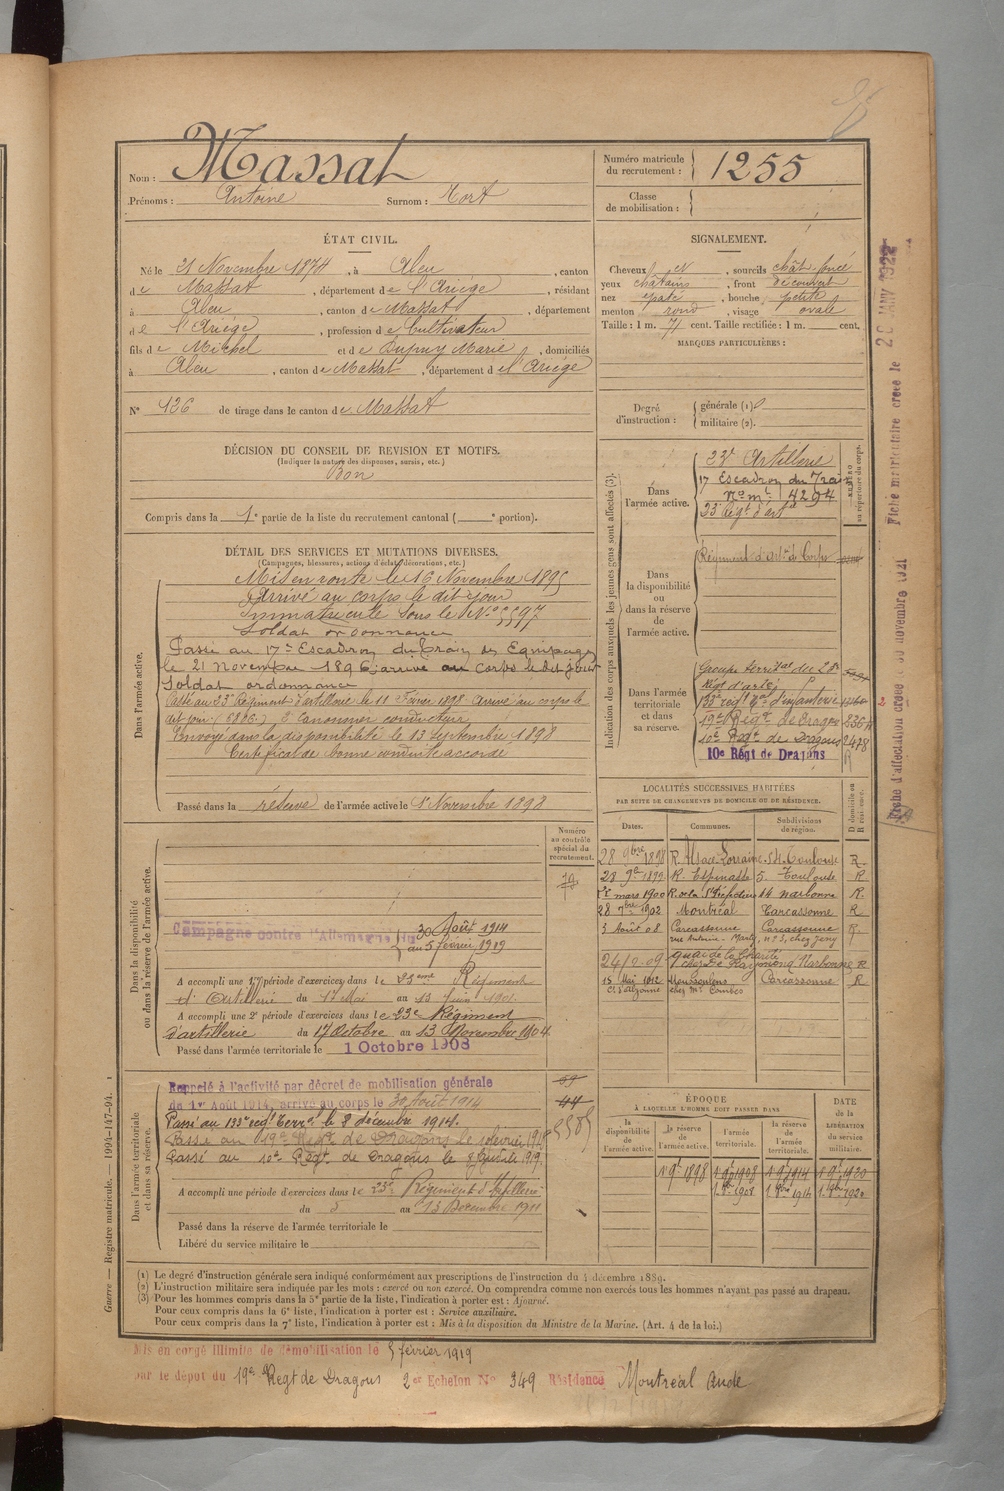 Nom : Massat
Prénoms : Antoine Surnom : Tort
Numéro matricule du recrutement : 1255
Classe de mobilisation :
ÉTAT CIVIL.
Né le 21 Novembre 1874, à Aleu, canton
de Massat, département de l'Ariège, résidant
à Aleu, canton de Massat, département
de l'Ariège, profession de Cultivateur
fils de Michel et de Dupuy Marie, domiciliés
à Aleu, canton de Massat, département de l'Ariège
N° 126 de tirage dans le canton de Massat
SIGNALEMENT.
Cheveux et, sourcils chât-foncé
yeux châtains, front découvert
nez épaté, bouche petite
menton rond, visage ovale
Taille : 1 m. 71 cent. Taille rectifiée : 1 m. cent.
MARQUES PARTICULIÈRES :
Degré d'instruction : générale (1)
militaire (2).
DÉCISION DU CONSEIL DE REVISION ET MOTIFS.
(Indiquer la nature des dispenses, sursis, etc.)
Bon
Compris dans la 1e partie de la liste du recrutement cantonal ( e portion).
DÉTAIL DES SERVICES ET MUTATIONS DIVERSES.
(Campagnes, blessures, actions d'éclat, décorations, etc.)
Dans l'armée active.
Mis en route le 16 Novembre 1895
Arrivé au corps le dit jour
Immatriculé sous le N° 5597
Soldat ordonnance
Passé au 17e Escadron du Train des Equipages
le 21 novembre 1896, arrivé au corps le dit jour
Soldat ordonnance
Passé au 23e Régiment d'artillerie le 11 Février 1898. Arrivé au corps le
dit jour (6806) 2e Canonnier conducteur
Envoyé dans la disponibilité le 13 Septembre 1898
Certificat de bonne conduite accordé
Passé dans la réserve de l'armée active le 1er Novembre 1898
Indication des corps auxquels les jeunes gens sont affectés (3).
NUMÉRO au répertoire du corps.
Dans l'armée active.
23e Artillerie
17 Escadron du Train
No mle 4294
23e Régt d'art
Dans la disponibilité ou dans la réserve de l'armée active.
Régiment d'artie à Corps
Dans l'armée territoriale et dans sa réserve.
Groupe territal du 23e
Régt d'artie
133e régt tal d'infanterie
19e Régt de Dragons 236
10e Regt de Dragons 2478
10e Régt de Dragons
LOCALITÉS SUCCESSIVES HABITÉES
PAR SUITE DE CHANGEMENTS DE DOMICILE OU DE RÉSIDENCE.
Dates. Communes. Subdivisions de région. D domicile ou R résidence.
28 9bre 1898 R. Alsace-Lorraine. 54 Toulouse R.
28 9e 1899 R. Espinasse 5 Toulouse R
mars 1900 R. de la S Préfecture 14 Narbonne R.
28 7bre 1902 Montréal Carcassonne R
3 Août 08 Carcassonne Carcassonne R
rue Antoine-Marty, n° 3, chez Jany
24-2-09 quai de la Charité
chez Mr Raymond Narbonne R
15 Mai 1912 Moussoulens Carcassonne R
Ct d'Alzonne chez Mr Combes
Numéro au contrôle spécial du recrutement.
Dans la disponibilité ou dans la réserve de l'armée active.
Campagne contre l'Allemagne du 30 Août 1914
au 5 février 1919
A accompli une 1re période d'exercices dans le 23eme Régiment
d'Artillerie du 17 Mai au 13 Juin 1901.
A accompli une 2e période d'exercices dans le 23e Régiment
d'artillerie du 17 Octobre au 13 Novembre 1904.
Passé dans l'armée territoriale le 1 Octobre 1908
Dans l'armée territoriale et dans sa réserve.
Rappelé à l'activité par décret de mobilisation générale
du 1er Août 1914, arrivé au corps le 30 Août 1914
Passé au 133e régt Terral le 8 décembre 1914.
Passé au 19e Regt de Dragons le
Passé au 10e Régt de Dragons le
A accompli une période d'exercices dans le 23e Régiment d'Artillerie
du 5 au 13 Décembre 1911
Passé dans la réserve de l'armée territoriale le
Libéré du service militaire le
44
ÉPOQUE
À LAQUELLE L'HOMME DOIT PASSER DANS
la disponibilité de l'armée active.
la réserve de l'armée active.
l'armée territoriale.
la réserve de l'armée territoriale.
DATE de la LIBÉRATION du service militaire.
1er 9e 1898 1er 9e 1908 1er 9e 1914 1er 9e 1920
1er 8bre 1908 1. 8bre 1914 1. 8bre 1920
(1) Le degré d'instruction générale sera indiqué conformément aux prescriptions de l'instruction du 4 décembre 1889.
(2) L'instruction militaire sera indiquée par les mots : exercé ou non exercé. On comprendra comme non exercés tous les hommes n'ayant pas passé au drapeau.
(3) Pour les hommes compris dans la 5e partie de la liste, l'indication à porter est : Ajourné.
Pour ceux compris dans la 6e liste, l'indication à porter est : Service auxiliaire.
Pour ceux compris dans la 7e liste, l'indication à porter est : Mis à la disposition du Ministre de la Marine. (Art. 4 de la loi.)
Mis en congé illimité de démobilisation le 5 février 1919
par le dépôt du 19e Regt de Dragons 2e Echelon N° 349 Résidence Montréal Aude
Guerre — Registre matricule. — 1994-147-94.
Fiche matriculaire créée le 20 JANV 1922
Fiche d'affectation créée le 30 novembre 1921